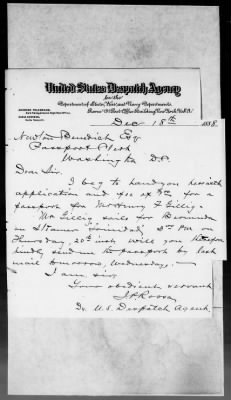 United States Despatch Agency
for the
Departments of State, War and Navy Departments,
Dec 18th 1888.
Newton Benedict Esq
Passport Clerk
Washington D.C.
Dear Sir.
I beg to hand you herewith
application and fee of for a
passport for Mr Henry F. Gillig.
Mr Gillig sails for Bermuda
on Steamer Trinidad, 2nd PM on
Thursday, 20th inst. will you therefore
kindly send me the passport by last
mail tomorrow, Wednesday,
I am sir,
Your obedient servant
Dy. U.S. Despatch Agent.